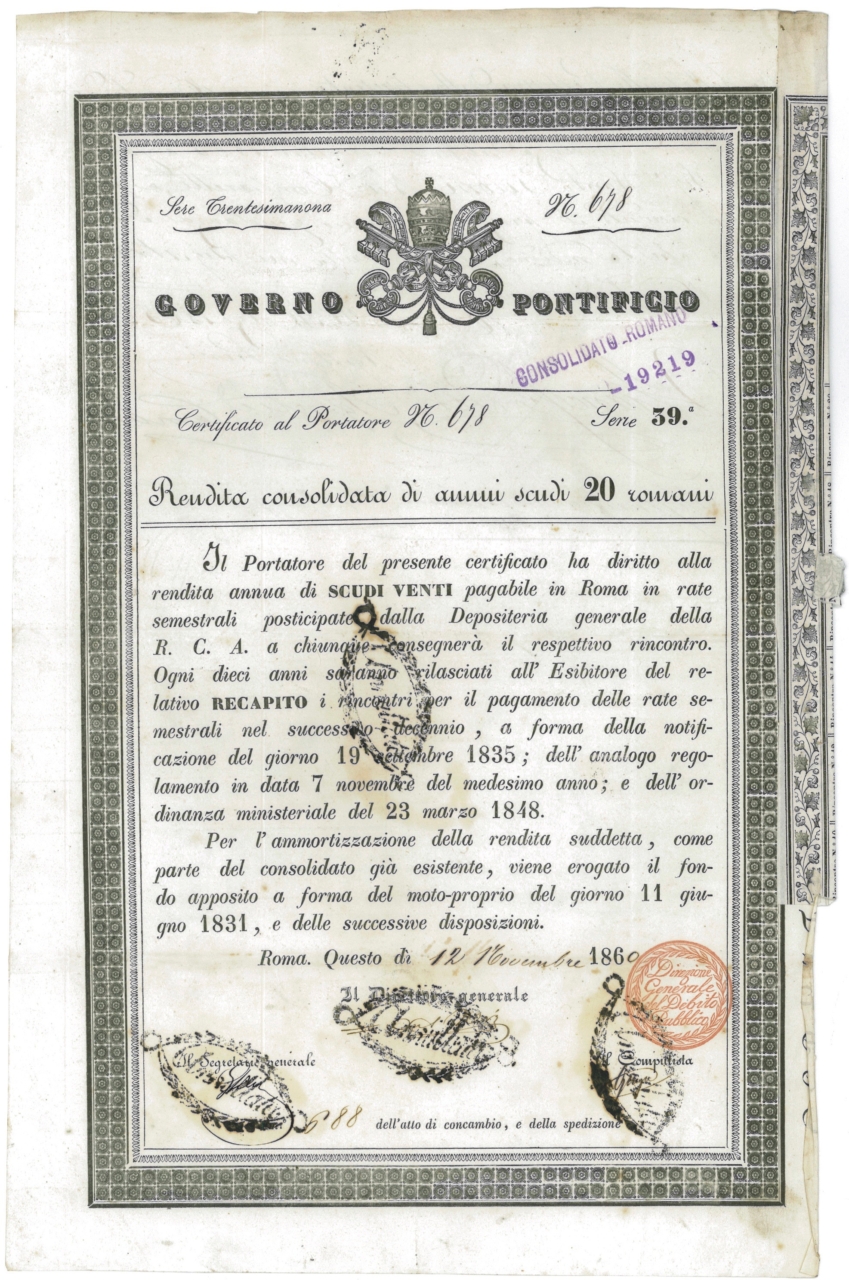 Serie Trentesimanona
N. 678
GOVERNO PONTIFICIO
CONSOLIDATO ROMANO
-19219
Certificato al Portatore N. 678 Serie 39.ª
Rendita consolidata di annui scudi 20 romani
Il Portatore del presente certificato ha diritto alla
rendita annua di SCUDI VENTI pagabile in Roma in rate
semestrali posticipate dalla Depositeria generale della
R. C. A. a chiunque consegnerà il respettivo rincontro.
Ogni dieci anni saranno rilasciati all' Esibitore del re-
lativo RECAPITO i rincontri per il pagamento delle rate se-
mestrali nel successivo decennio, a forma della notifi-
cazione del giorno 19 settembre 1835; dell' analogo rego-
lamento in data 7 novembre del medesimo anno; e dell' or-
dinanza ministeriale del 23 marzo 1848.
Per l'ammortizzazione della rendita suddetta, come
parte del consolidato già esistente, viene erogato il fon-
do apposito a forma del moto-proprio del giorno 11 giu-
gno 1831, e delle successive disposizioni.
Roma. Questo dì 12 Novembre 1860
Direzione
Generale
del Debito
Pubblico
Il Direttore generale
Il Segretario generale
Il Computista
688 dell'atto di concambio, e della spedizione